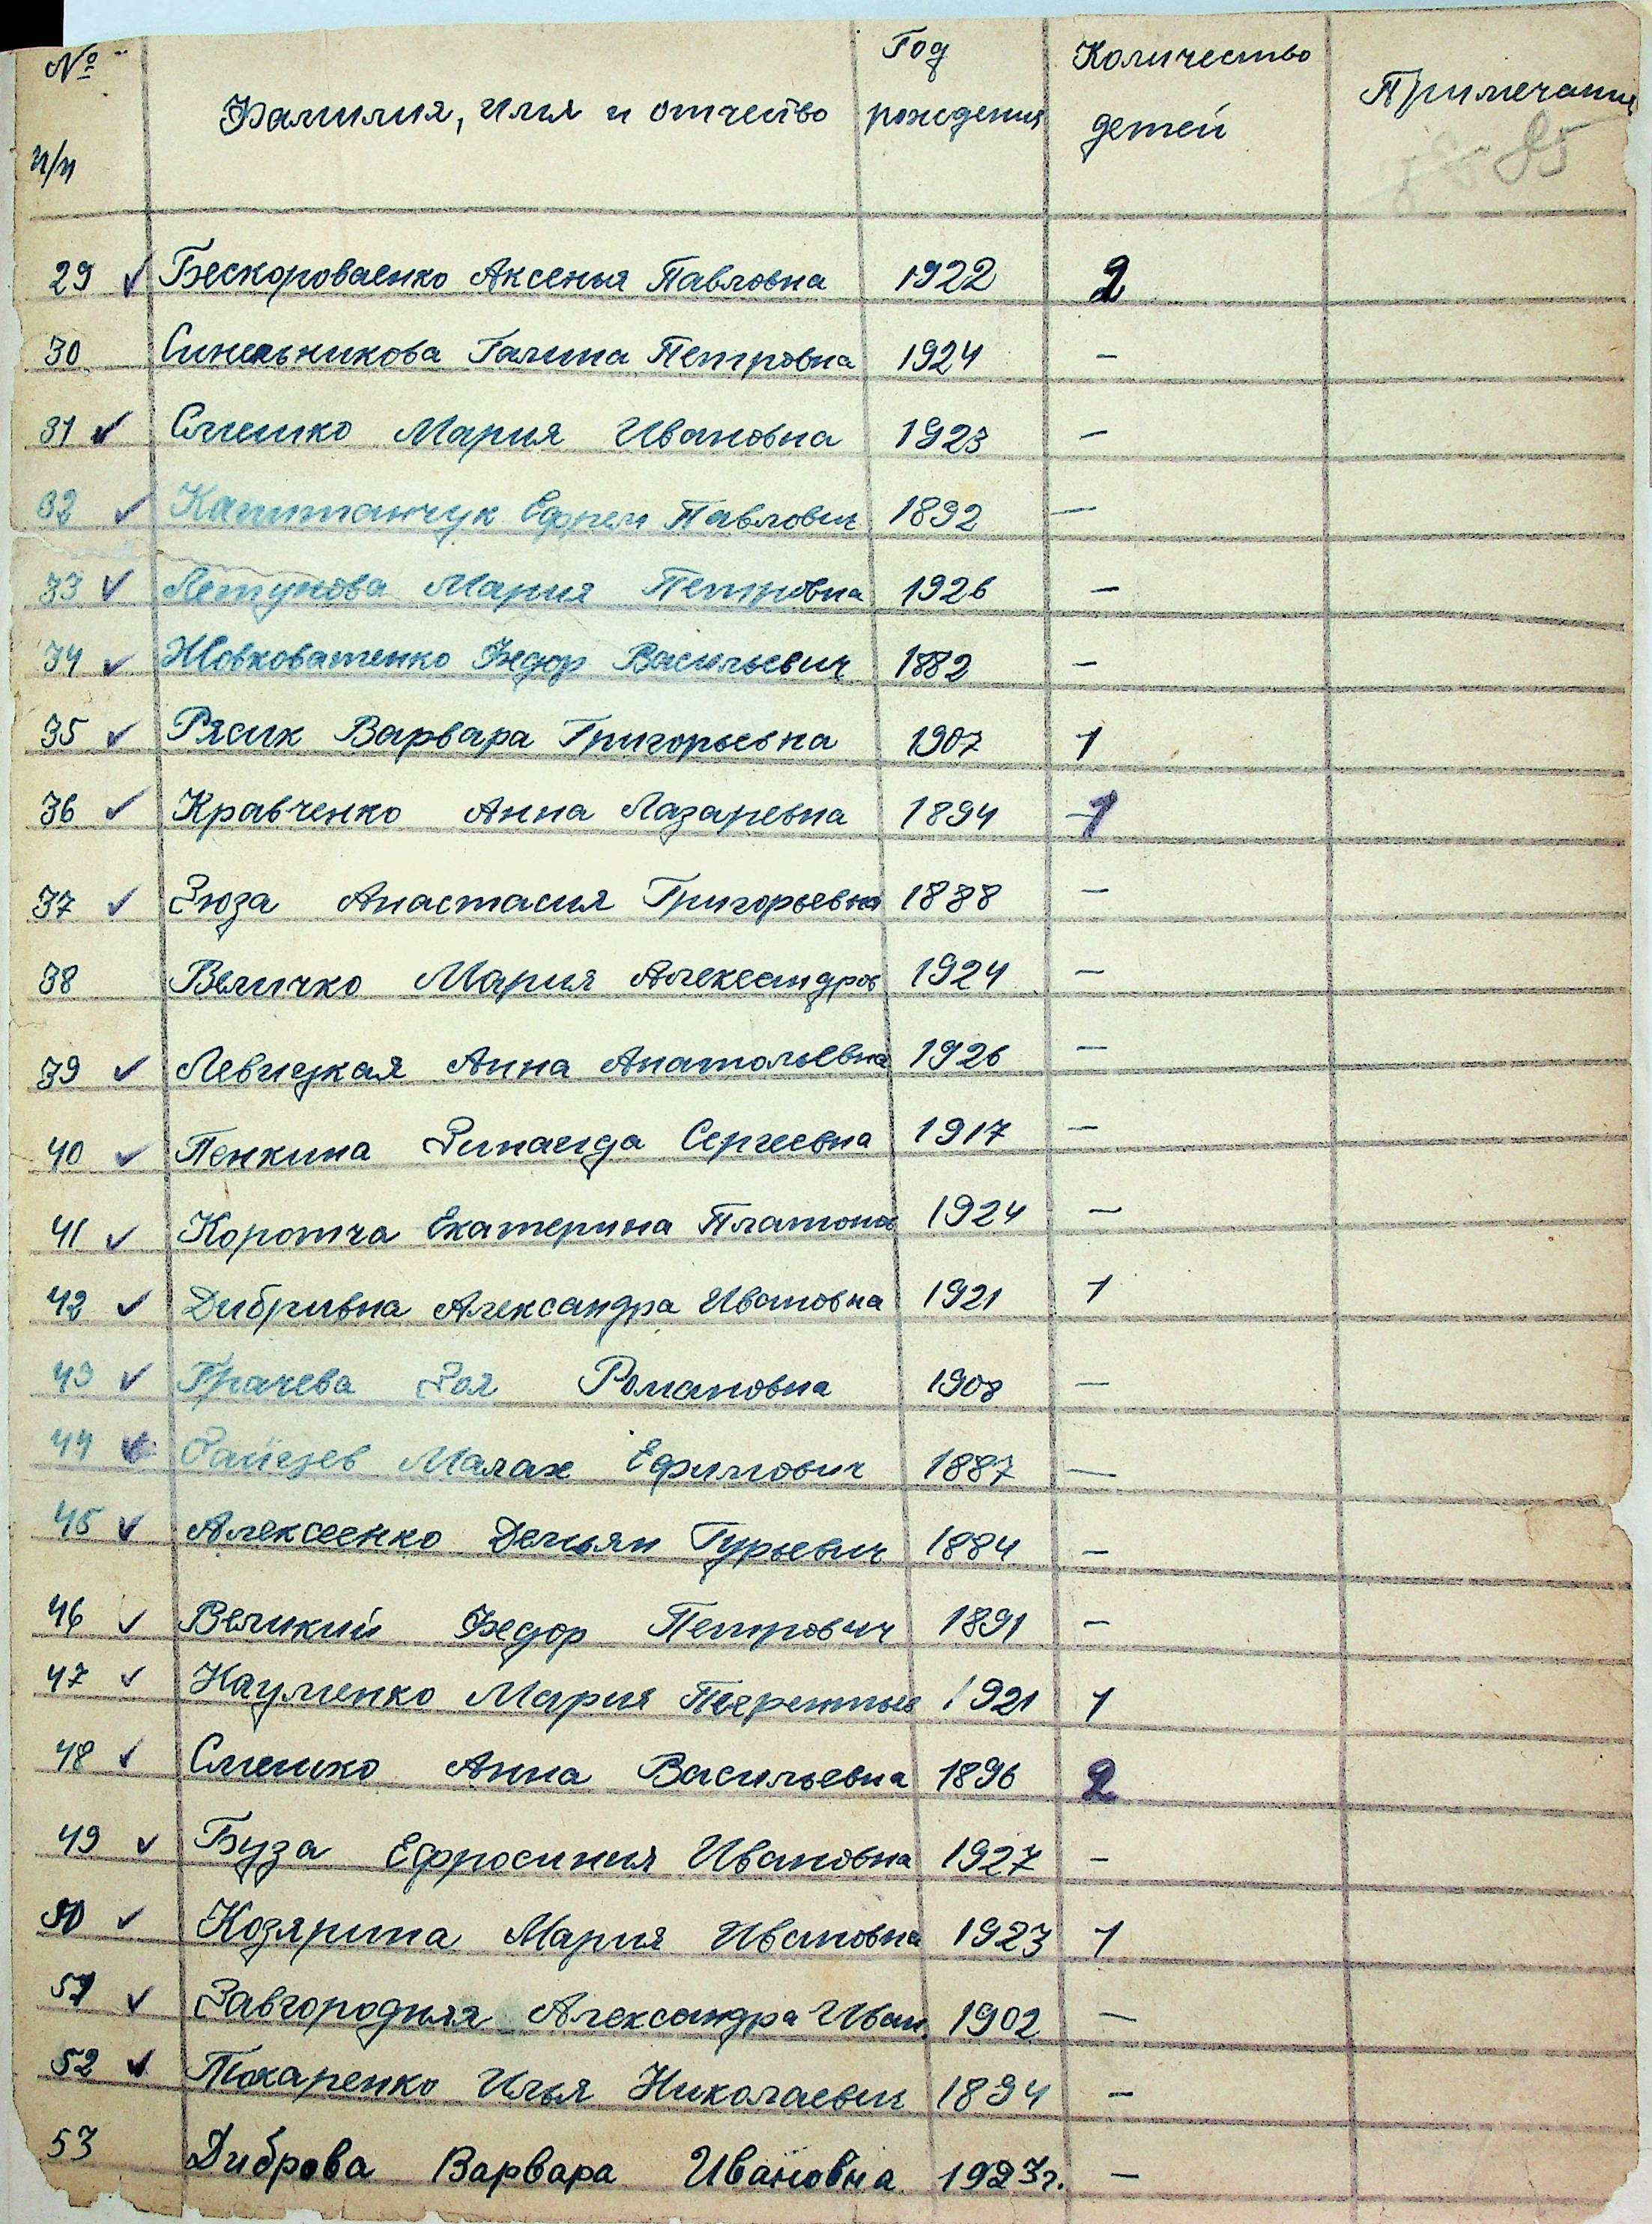 № п/п Фамилия, имя и отчество Год рождения Количество детей Примечание
85
29 ✓ Бескороваенко Аксенья Павловна 1922 2
30 Синельникова Галина Петровна 1924 —
31 ✓ Слешко Мария Ивановна 1923 —
32 ✓ Каштанчук Ефрем Павлович 1892 —
33 ✓ Летунова Мария Петровна 1926 —
34 ✓ Жовковатенко Федор Васильевич 1882 —
35 ✓ Рясик Варвара Григорьевна 1907 1
36 ✓ Кравченко Анна Лазаревна 1894 1
37 ✓ Зюза Анастасия Григорьевна 1888 —
38 Величко Мария Александров 1924 —
39 ✓ Левицкая Анна Анатольевна 1926 —
40 ✓ Пенкина Зинаида Сергеевна 1917 —
41 ✓ Коротча Екатерина Платонов 1924 —
42 ✓ Дибривна Александра Ивановна 1921 1
43 ✓ Грачева Зоя Романовна 1908 —
44 ✓ Малах Ефимович 1887 —
45 ✓ Алексеенко Демьян Гурьевич 1884 —
46 ✓ Великий Федор Петрович 1891 —
47 ✓ Науменко Мария Терентьев 1921 1
48 ✓ Слешко Анна Васильевна 1896 2
49 ✓ Буза Ефросиния Ивановна 1927 —
50 ✓ Козярина Мария Ивановна 1923 1
51 ✓ Завгородняя Александра Иван. 1902 —
52 ✓ Токаренко Илья Николаевич 1894 —
53 Диброва Варвара Ивановна 1923г. —